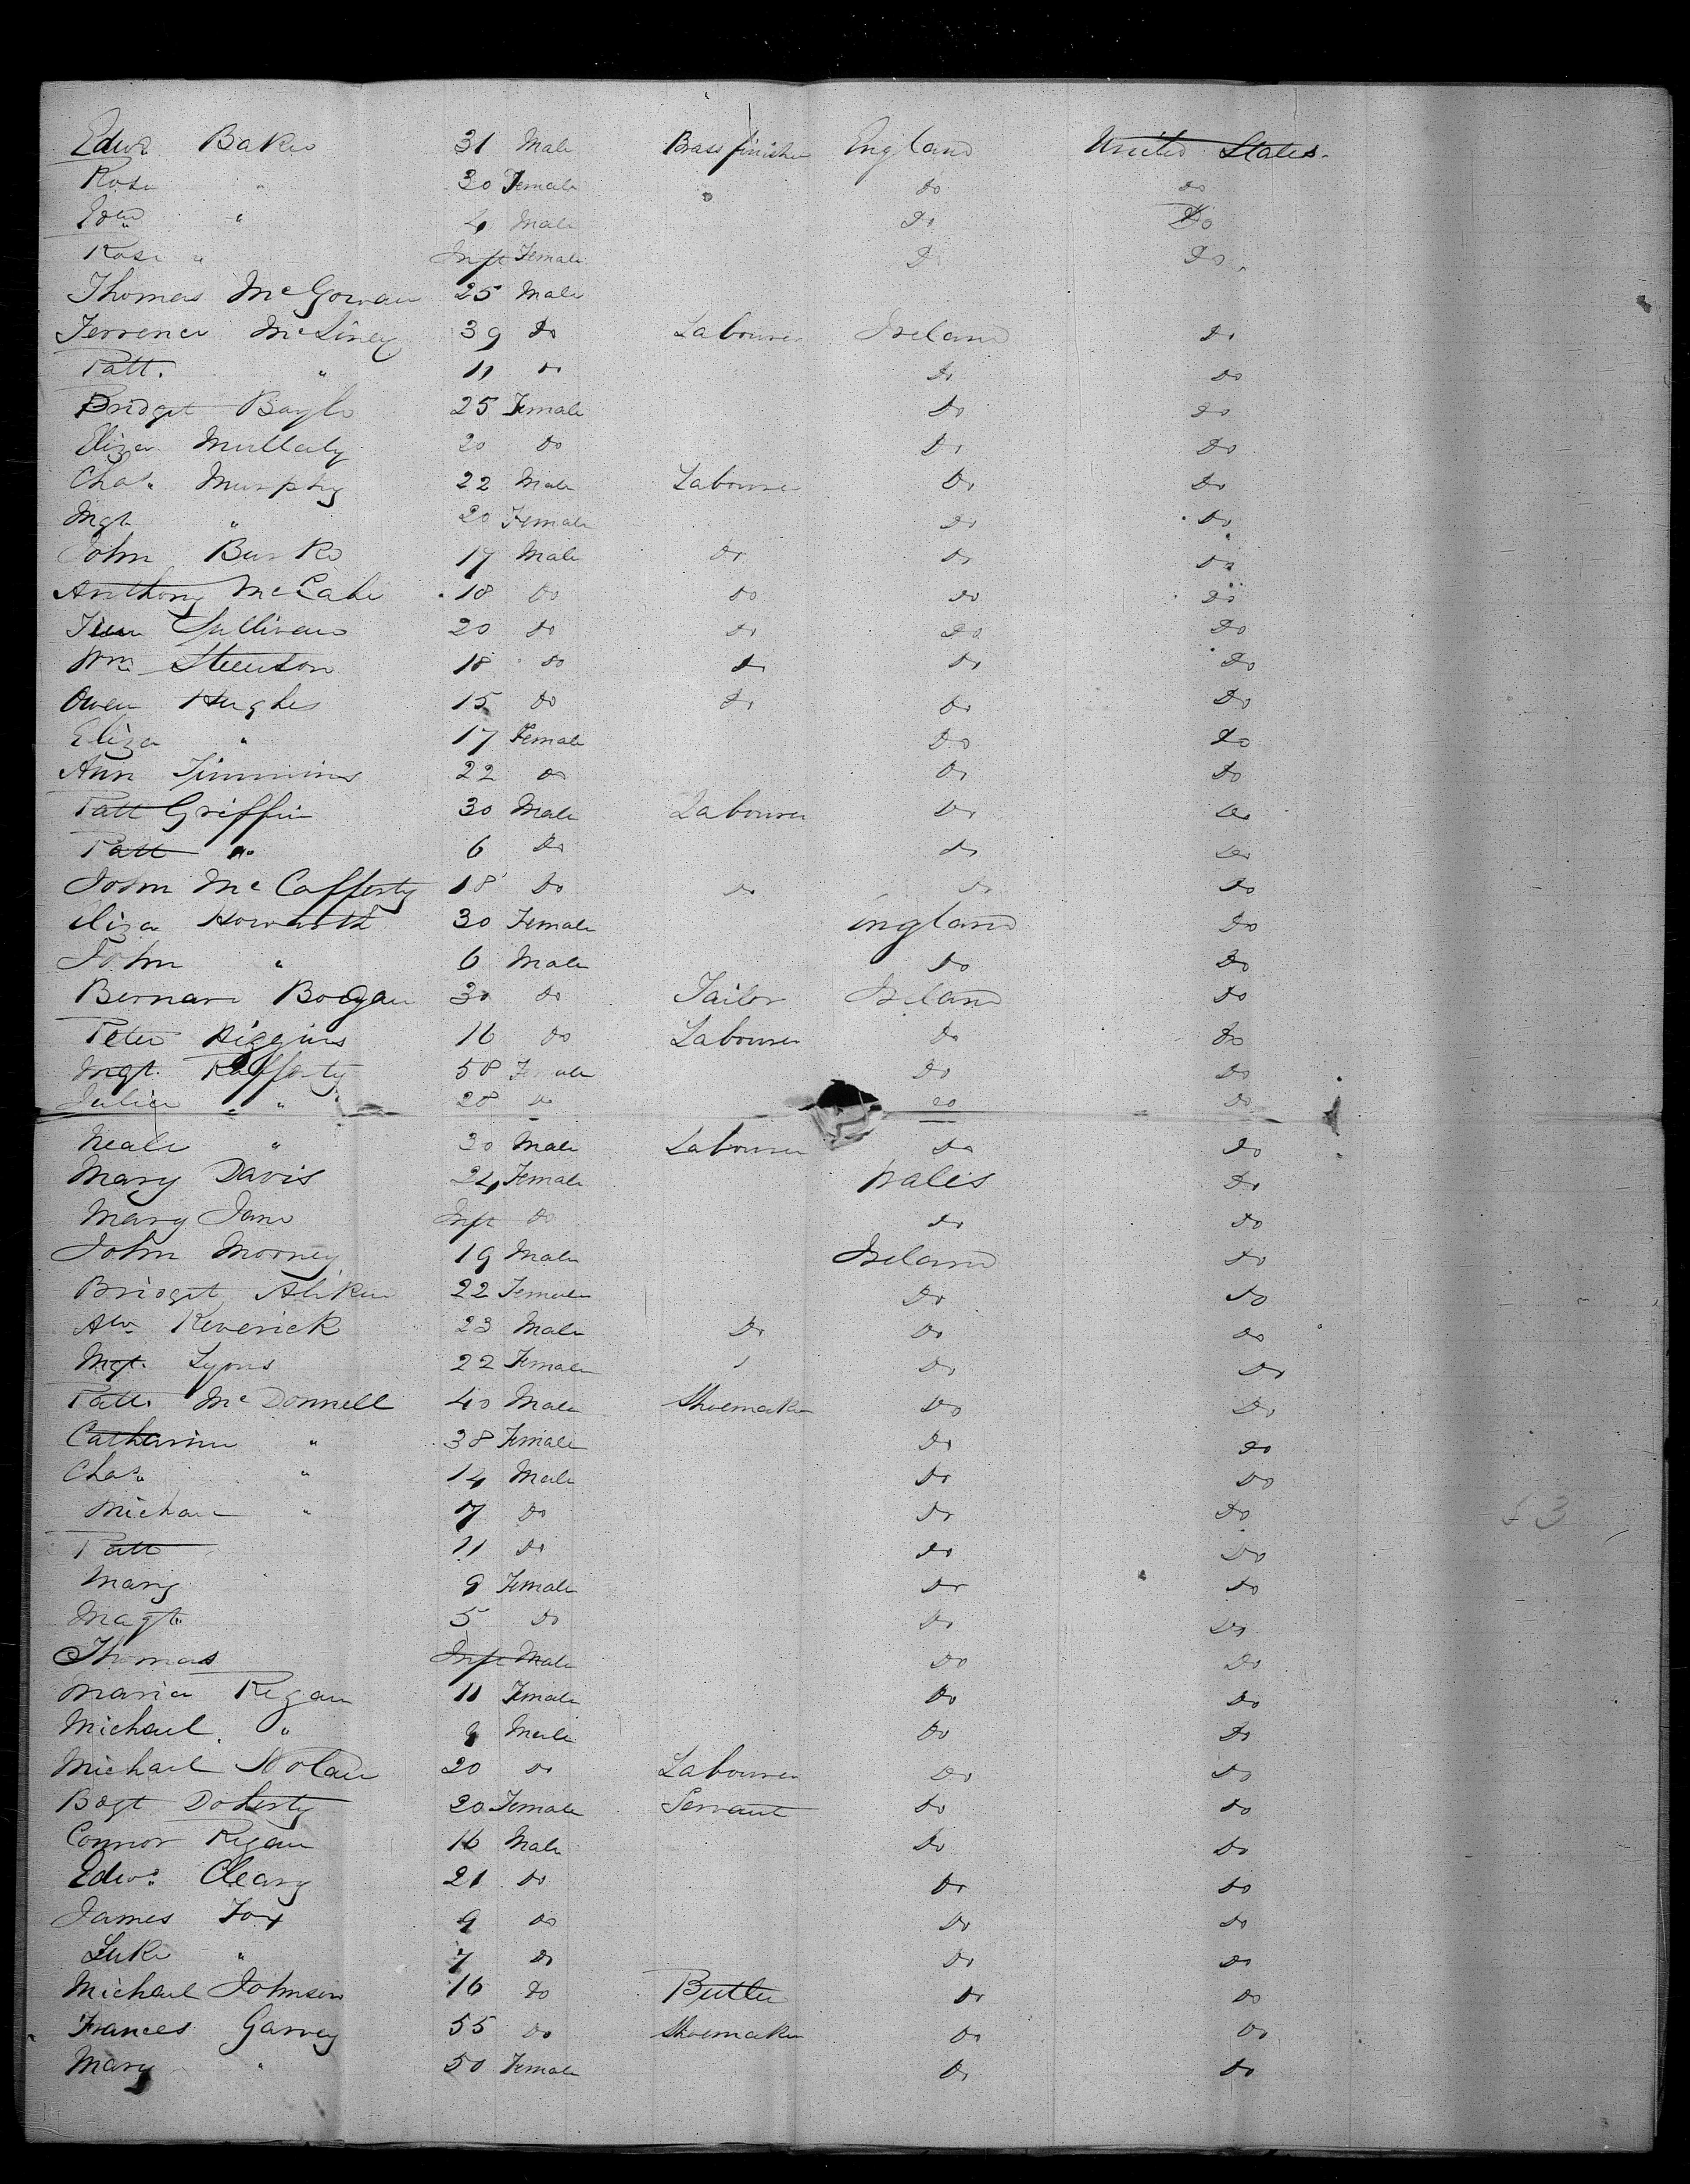 Edwd Baker 31 Male Brass finisher England United States.
Rose " 30 Female do do
Edwd " 4 Male Do Do
Rose " Inft Female D Do
Thomas McGowan 25 Male
Terrence 39 Do Labourer Ireland Do
Patt. " 11 Do Do Do
Bridget Boyle 25 Female Do Do
Eliza Mullaly 20 Do Do Do
Chas. Murphy 22 Male Labourer Do Do
Mgt " 20 Female Do Do
John Burke 17 Male Do Do Do
Anthony McCabe 18 Do Do Do Do
Sullivan 20 Do Do Do Do
Wm Steenson 18 Do Do Do Do
Owen Hughes 15 Do Do Do Do
Eliza " 17 Female Do Do
Ann Timmins 22 Do Do Do
Patt Griffin 30 Male Labourer Do Do
Patt " 6 Do Do Do
John McCafferty 18 Do Do Do Do
Eliza Howarth 30 Female England Do
John " 6 Male Do Do
Bernard Bodgan 30 Do Tailor Ireland Do
Peter Higgins 16 Do Labourer Do Do
Mgt. Rafferty 58 Female Do Do
Julia " 28 Do Do Do
Neale " 30 Male Labourer Do Do
Mary Davis 24 Female Wales Do
Mary Jane Inft Do Do Do
John Mooney 19 Male Ireland Do
Bridget 22 Female Do Do
Keverick 23 Male Do Do Do
Mgt. Lyons 22 Female Do Do
Patt. McDonnell 40 Male Shoemaker Do Do
Catherine " 38 Female Do Do
Chas. " 14 Male Do Do
Michael " 7 Do Do Do
Patt 11 Do Do Do
Mary 9 Female Do Do
Magt. 5 Do Do Do
Thomas Inft Male Do Do
Maria Regan 11 Female Do Do
Michael " 9 Male Do Do
Michael Nolan 20 Do Labourer Do Do
Bdgt Doherty 20 Female Servant Do Do
Connor Regan 16 Male Do Do
Edwd. Cleary 21 Do Do Do
James Fox 9 Do Do Do
Luke " 7 Do Do Do
Michael Johnson 16 Do Butler Do Do
Frances Garvey 55 Do Shoemaker Do Do
Mary " 50 Female Do Do